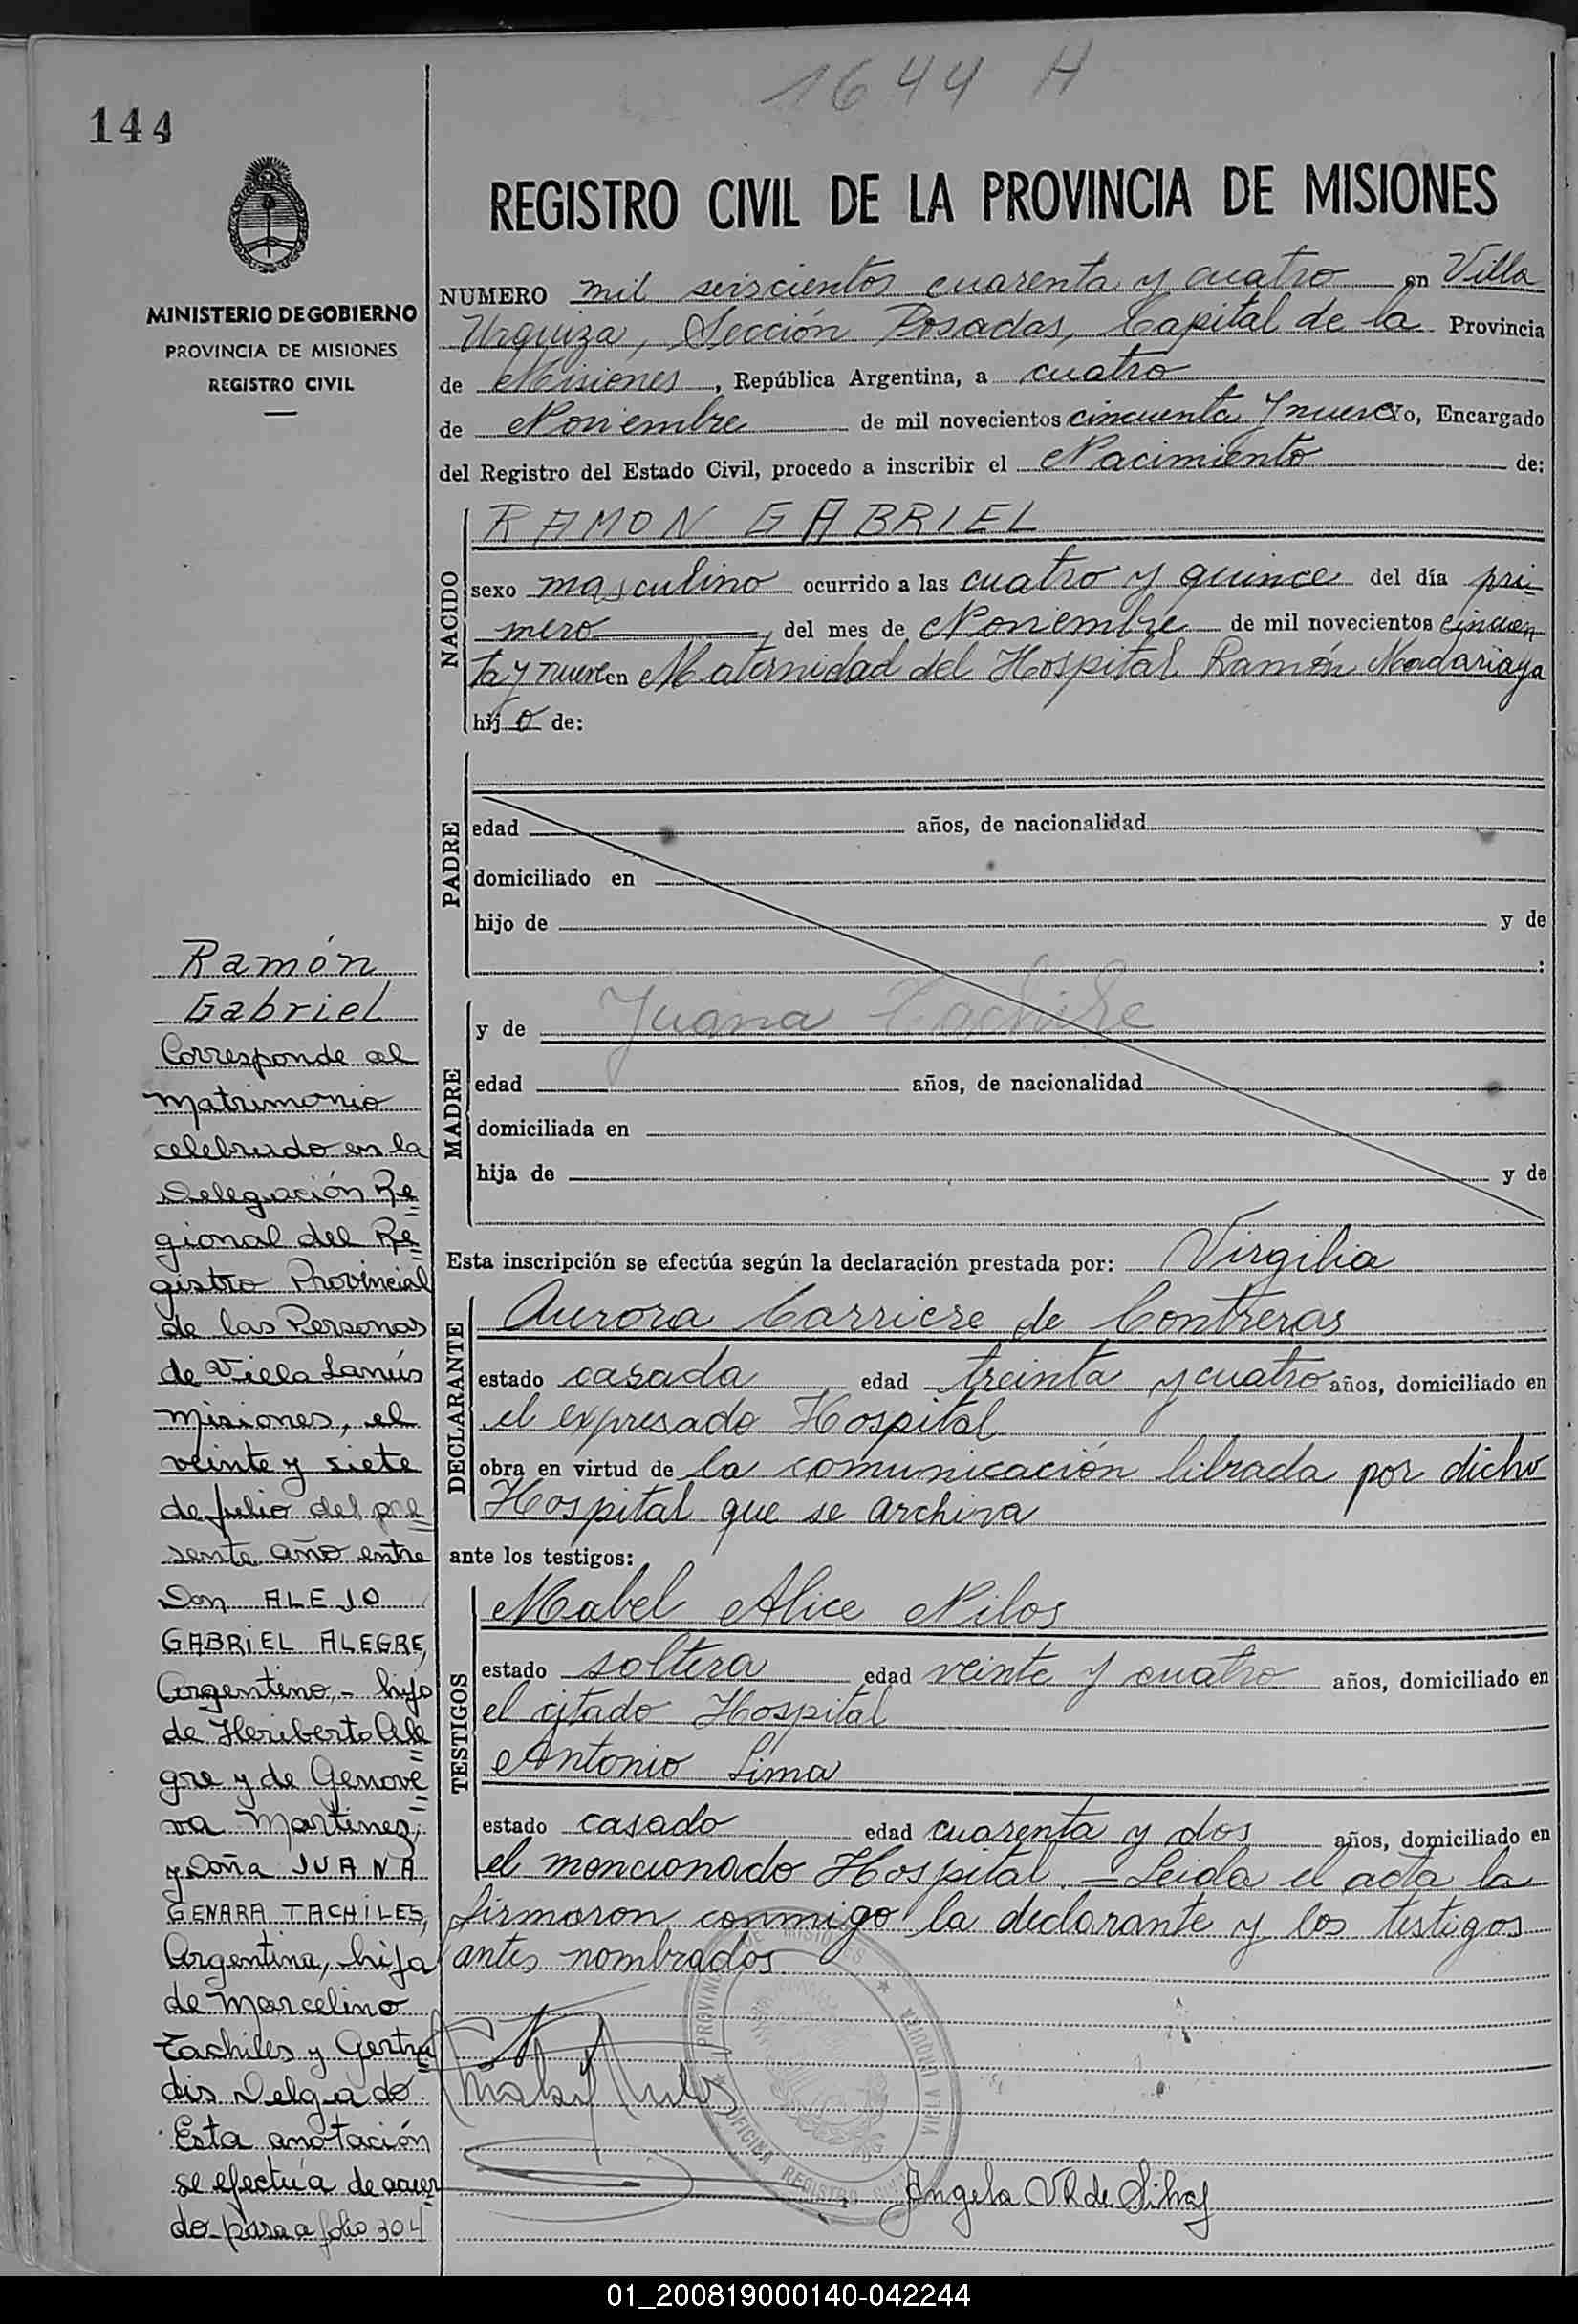 1644 H
144
MINISTERIO DE GOBIERNO
PROVINCIA DE MISIONES
REGISTRO CIVIL
REGISTRO CIVIL DE LA PROVINCIA DE MISIONES
NUMERO mil seiscientos cuarenta y cuatro en Villa
Urquiza, Sección Posadas, Capital de la Provincia
de Misiones, República Argentina, a cuatro
de Noviembre de mil novecientos cincuenta y nueve Yo, Encargado
del Registro del Estado Civil, procedo a inscribir el Nacimiento de:
NACIDO
RAMON GABRIEL
sexo masculino ocurrido a las cuatro y quince del día pri-
mero, del mes de Noviembre de mil novecientos cincuen
ta y nueve en Maternidad del Hospital Ramón Madariaga
hijo de:
PADRE
edad años, de nacionalidad
domiciliado en
hijo de y de
:
MADRE
y de Juana Tachile
edad años, de nacionalidad
domiciliada en
hija de y de
Esta inscripción se efectúa según la declaración prestada por: Virgilia
DECLARANTE
Aurora Carriere de Contreras
estado casada edad treinta y cuatro años, domiciliado en
el expresado Hospital
obra en virtud de la comunicación librada por dicho
Hospital que se archiva
ante los testigos:
TESTIGOS
Mabel Alice Nilos
estado soltera edad veinte y cuatro años, domiciliado en
el citado Hospital
Antonio Lima
estado casado edad cuarenta y dos años, domiciliado en
el mencionado Hospital.- Leida el acta la
firmaron conmigo la declarante y los testigos
antes nombrados
Angela VR de Silva
PROVINCIA DE MISIONES
VILLA URQUIZA
OFICINA REGISTRO CIVIL
Ramón
Gabriel
Corresponde al
matrimonio
celebrado en la
Delegación Re
gional del Re
gistro Provincial
de las Personas
de Villa Lanús
Misiones, el
veinte y siete
de julio del pre
sente año entre
Don ALEJO
GABRIEL ALEGRE,
Argentino,- hijo
de Heriberto Ale
gre y de Genove
va Martinez;
y Doña JUANA
GENARA TACHILES,
Argentina, hija
de Marcelino
Tachiles y Gertru
dis Delgado.
Esta anotación
se efectúa de acuer
do pasa a folio 304
01_200819000140-042244